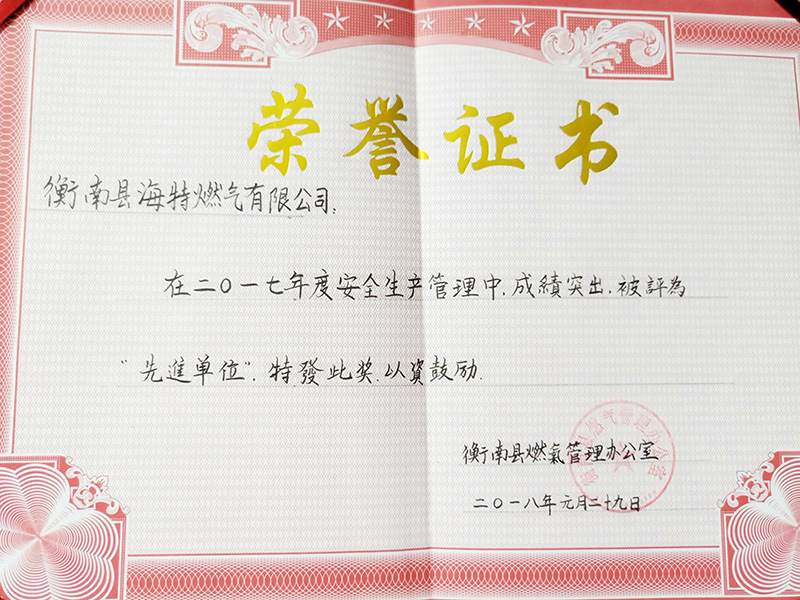 荣誉证书
衡南县海特燃气有限公司:
在二〇一七年度安全生产管理中,成績突出,被評為
“先進单位”,特發此奖,以資鼓励.
衡南县燃氣管理办公室
二〇一八年元月二十九日